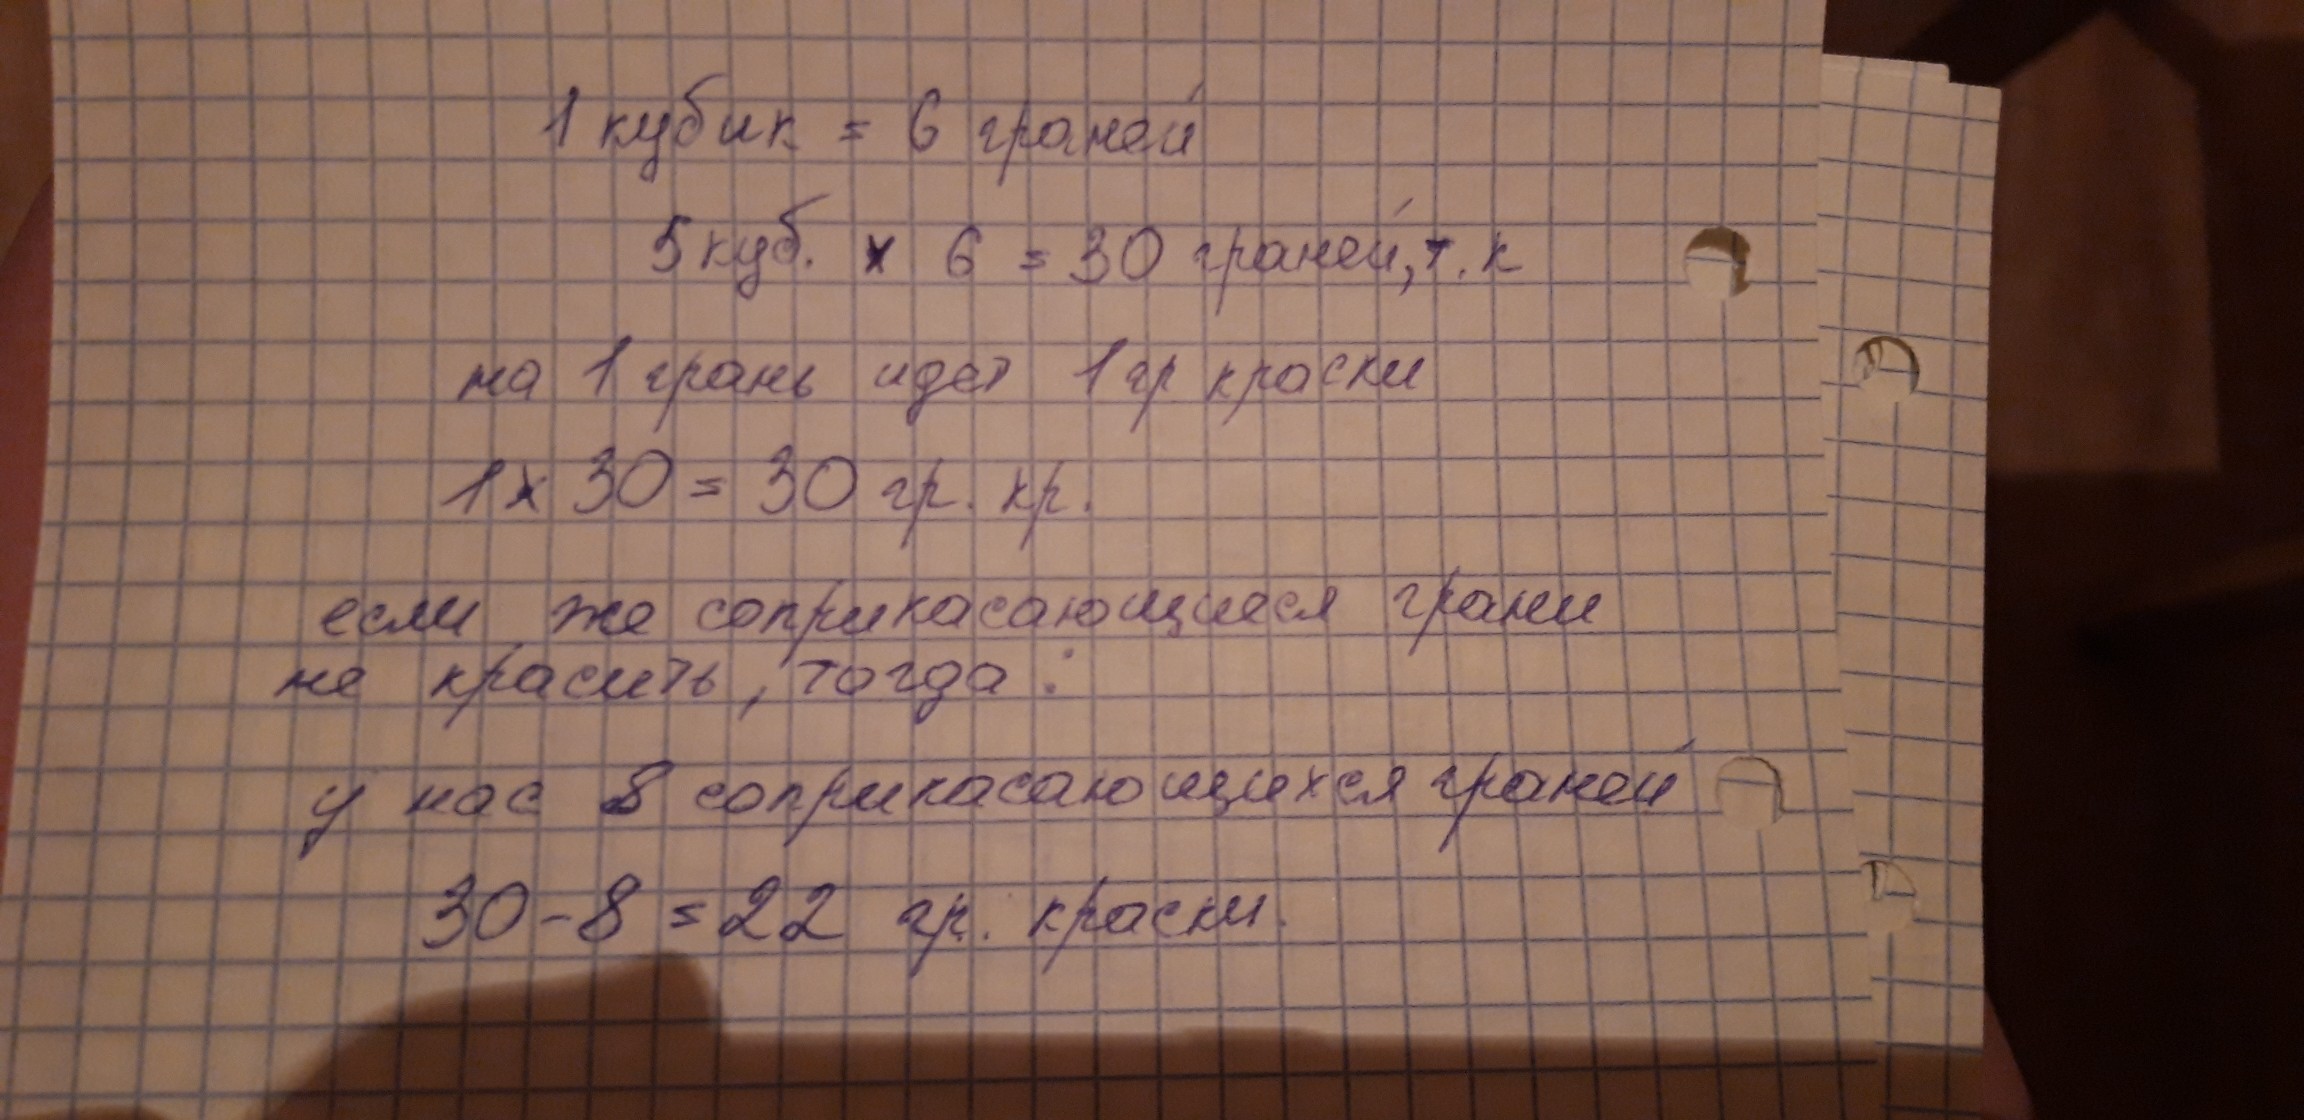 1 кубик = 6 граней
5 куб. х 6 = 30 граней, т. к
на 1 грань идет 1 гр краски
1 х 30 = 30 гр. кр.
если же соприкасающиеся грани
не красить, тогда:
у нас 8 соприкасающихся граней
30 - 8 = 22 гр. краски.